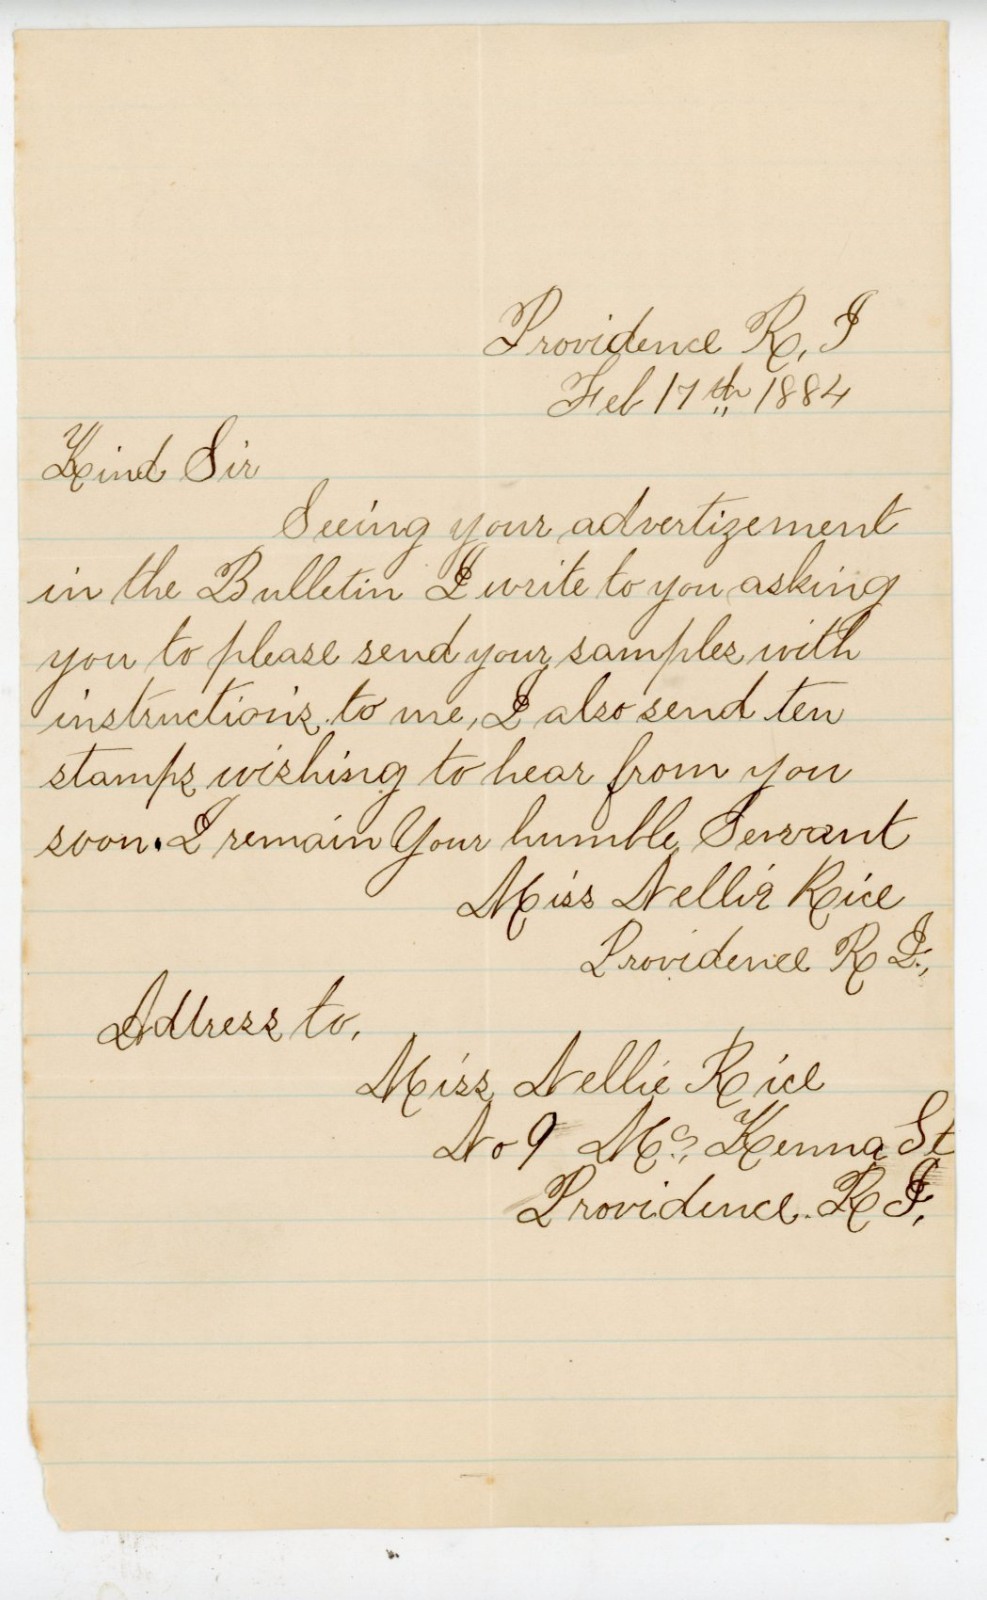 Providence R, I
Feb 17th 1884
Kind Sir
Seeing your advertizement
in the Bulletin I write to you asking
you to please send your samples with
instructions to me, I also send ten
stamps wishing to hear from you
soon. I remain Your humble Servant
Miss Nellie Rice
Providence R I.,
Address to,
Miss Nellie Rice
No 9 Mc, Kenna St
Providence. R I,